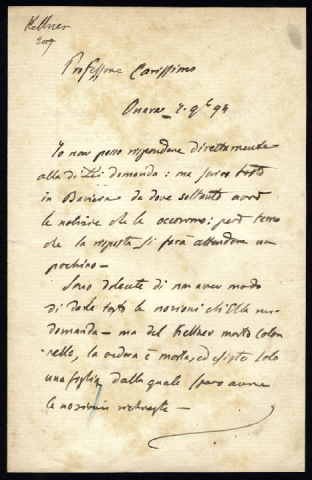 Kellner
Professore Carissimo
Onara 7. 9bre 94
Io non posso rispondere direttamente
alla di Lei domanda: ma scrivo tosto
in Baviera da dove soltanto avrò
le notizie che le occorrono; però temo
che la risposta si farà attendere un
pochino -
Sono dolente di non aver modo
di darle tosto le nozioni ch'Ella mi
domanda - ma del Kellner morto Colon
nello, la vedova è morta, ed esiste solo
una figlia dalla quale spero avere
le nozioni richieste -